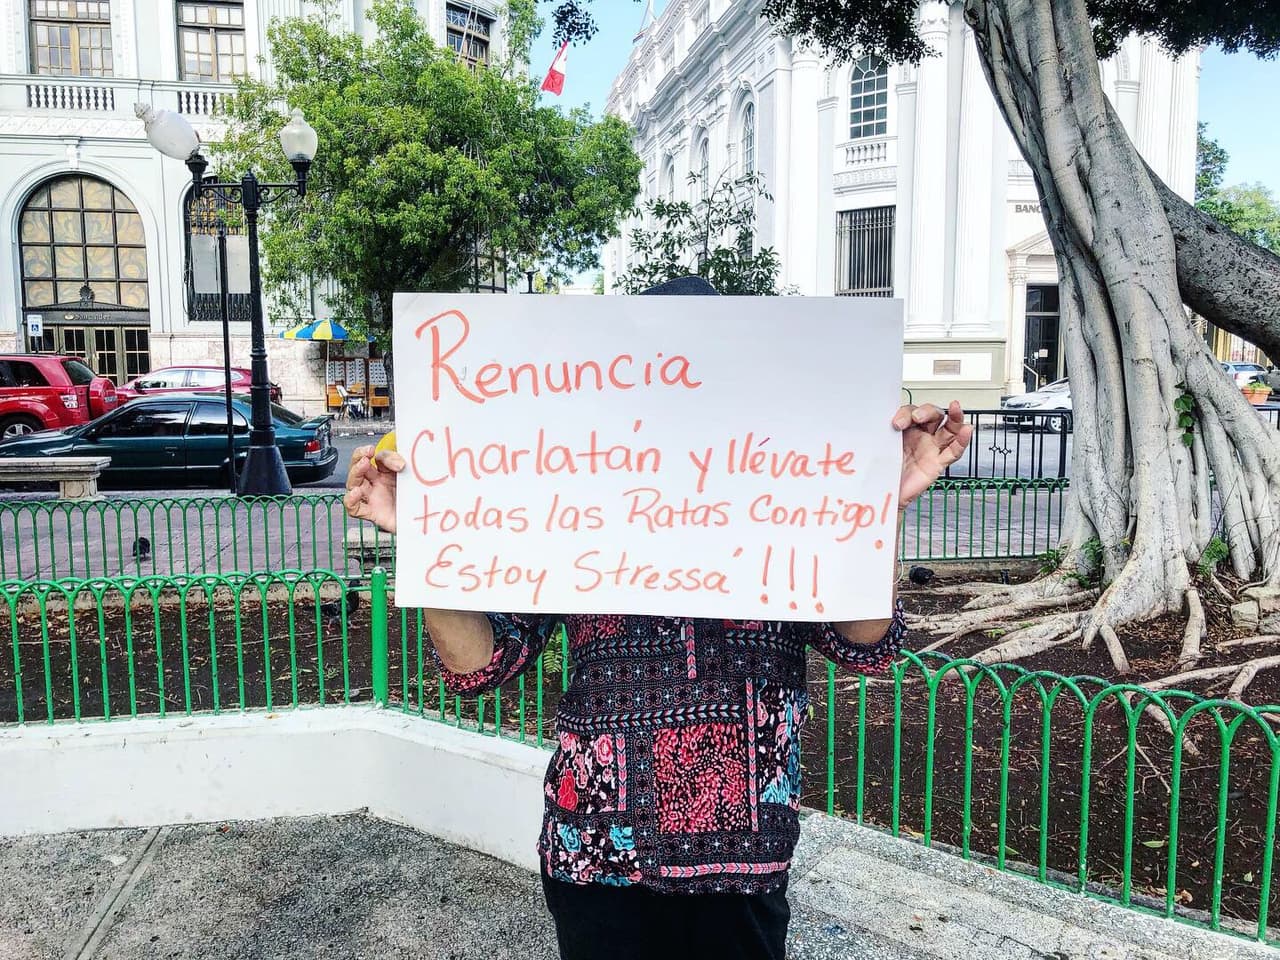 Renuncia
Charlatán y llévate
todas las Ratas Contigo!
Estoy Stressa´!!!
Santander
BANC